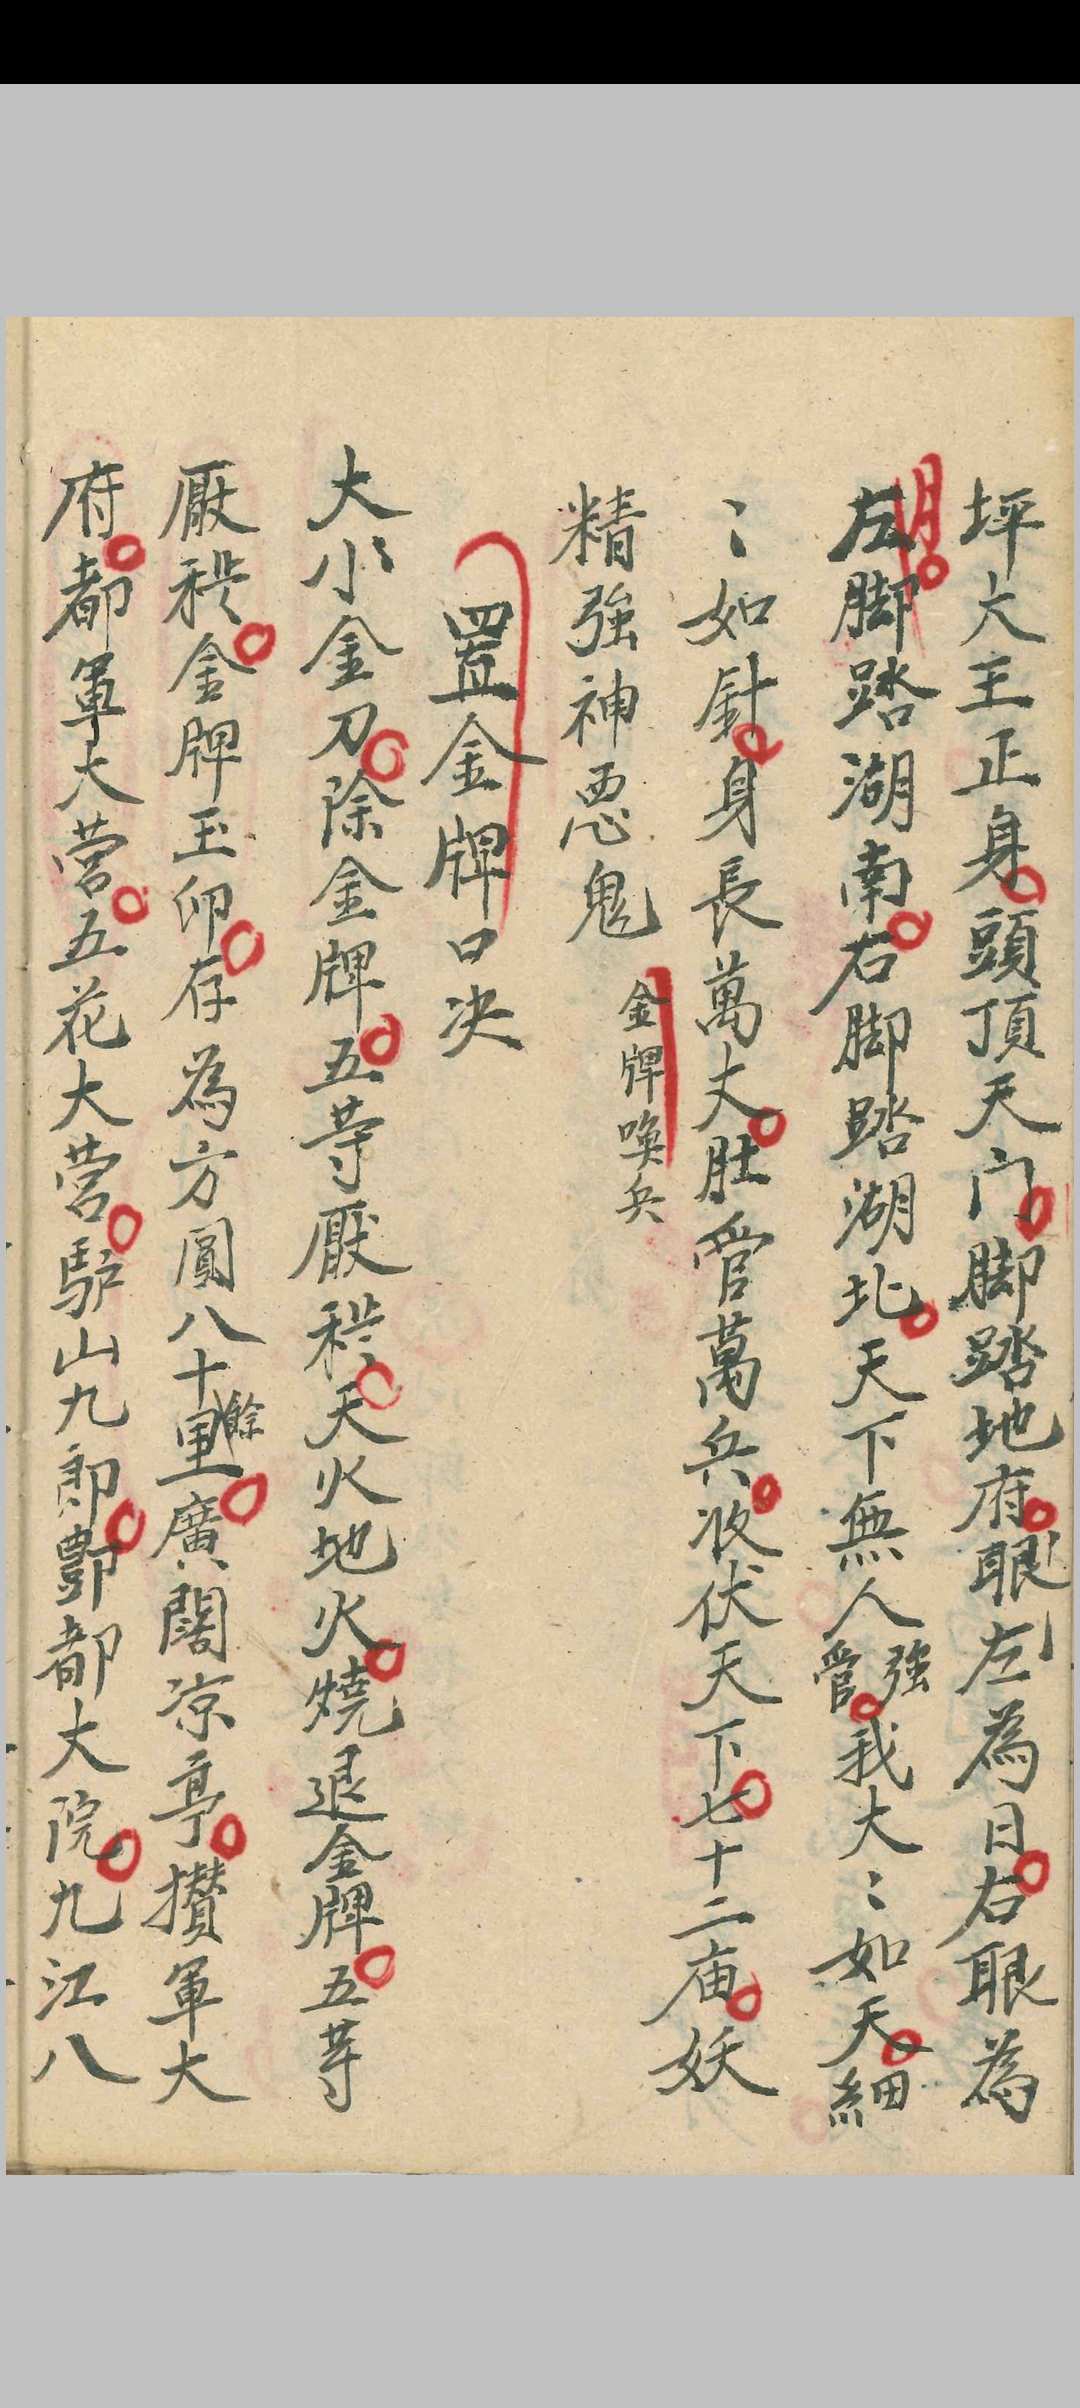 坪大王正身頭頂天门脚踏地府眼左為日右眼為
月左脚踏湖南右脚踏湖北天下無人強管我大〻如天細
〻如針身長萬丈肚管萬兵收伏天下七十二庙妖
精強神恶鬼
金牌喚兵
置金牌口决
大〻小金刀除金牌五等厭秽天火地火燒退金牌五等
厭秽金牌玉印存為方圓八十餘里廣闊凉亭攢軍大
府都軍大营五花大营馿山九郎酆都大院九江八